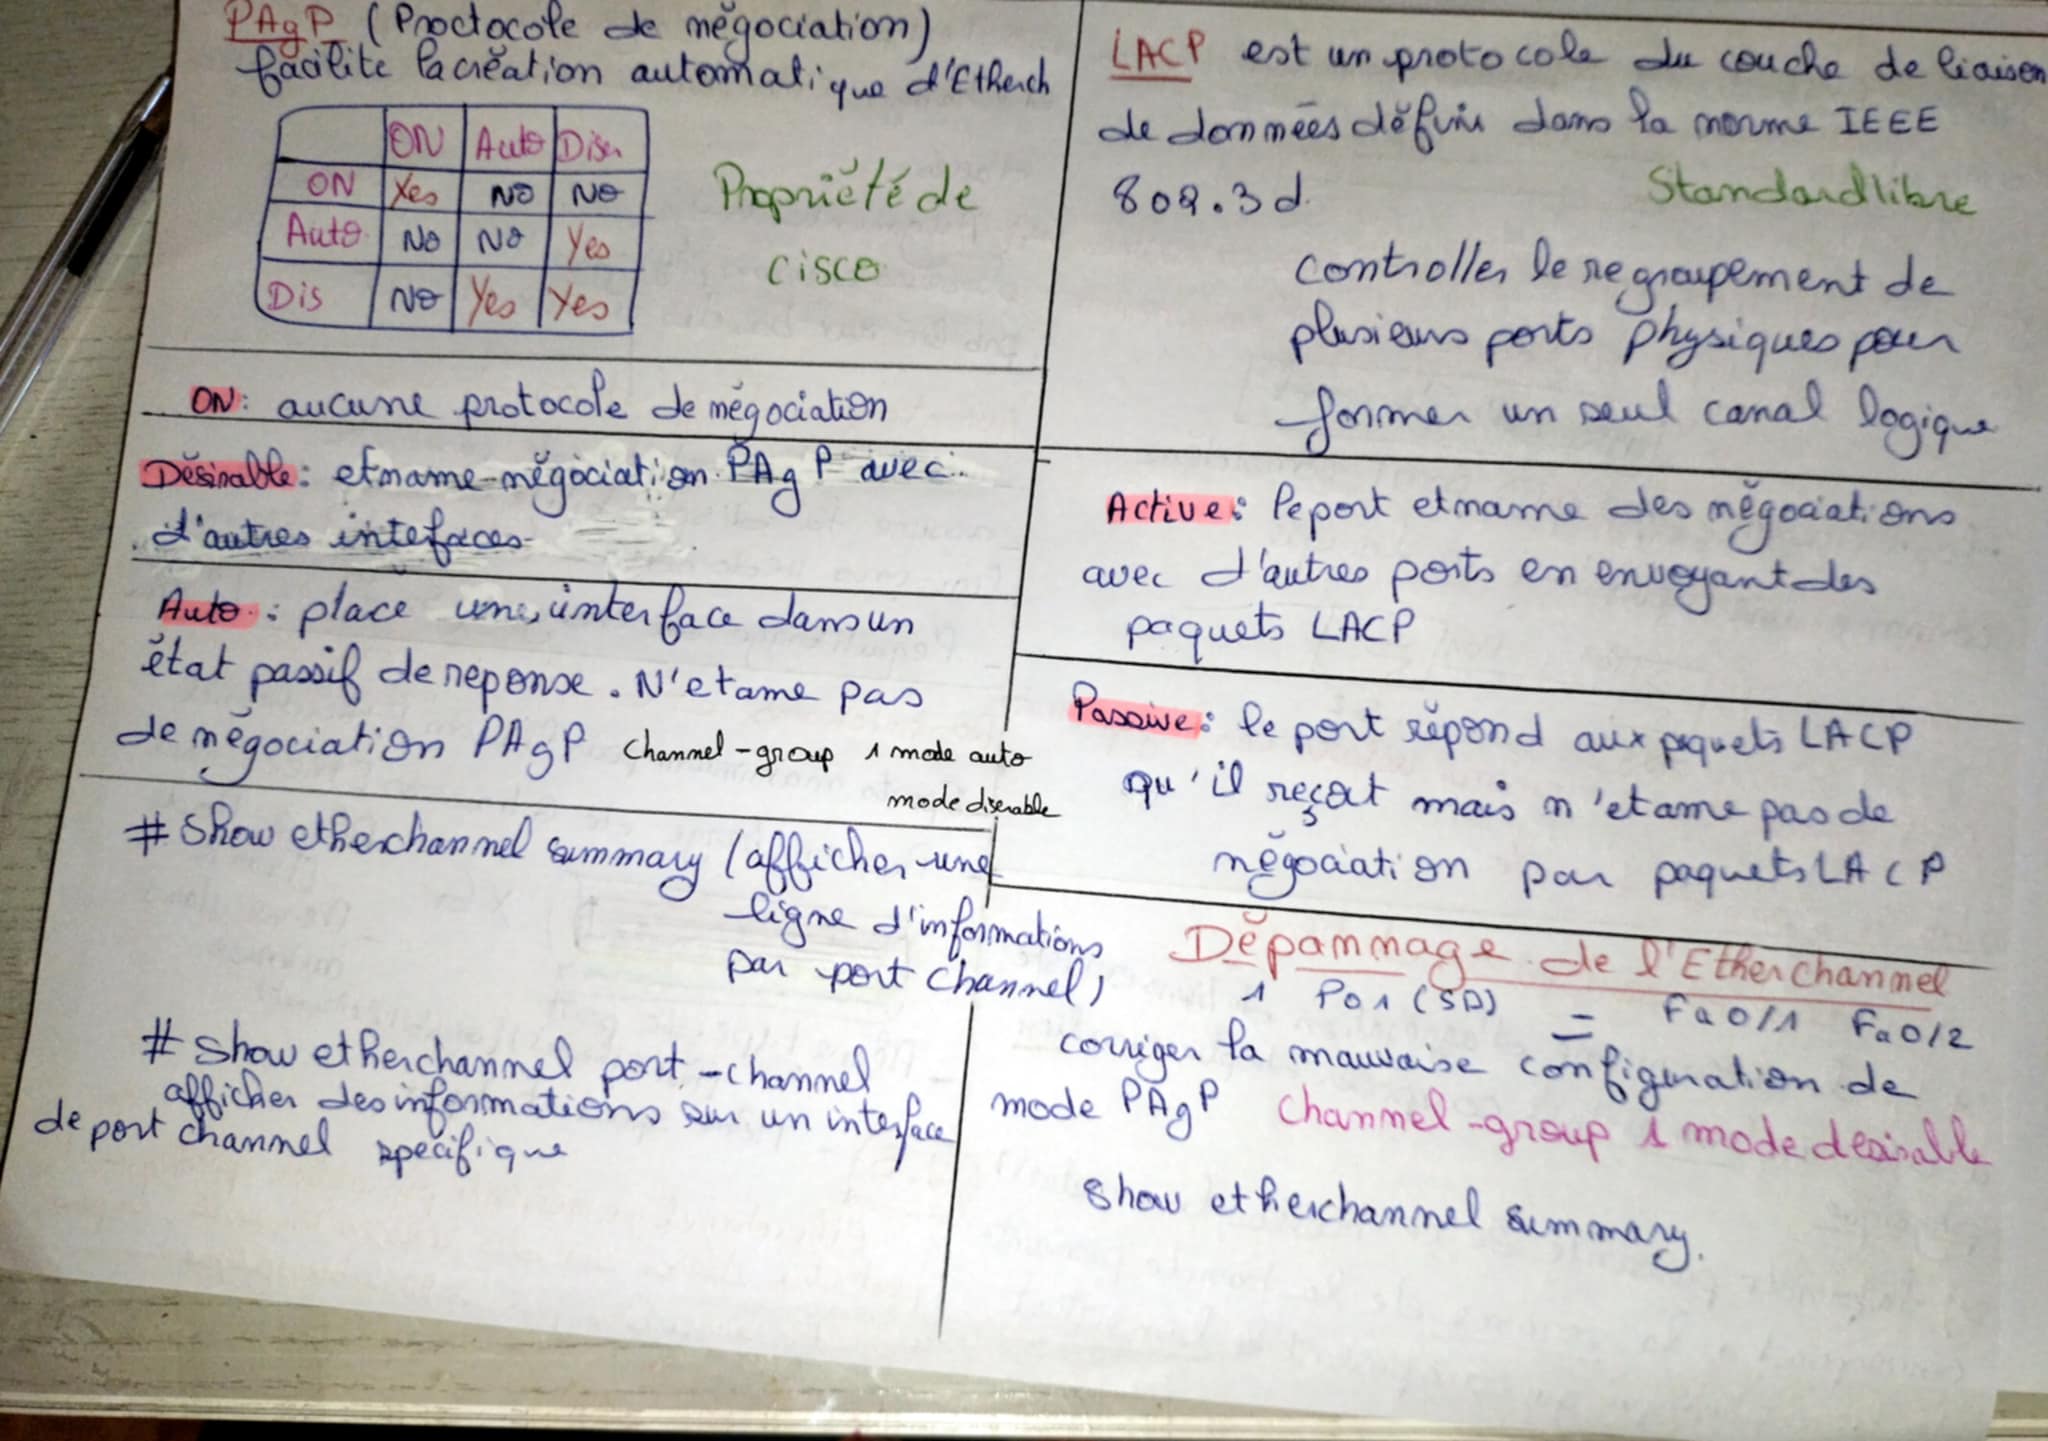 PAgP (Proctocole de négociation)
facilite la création automatique d'Etherch
ON Auto Disn
ON Yes NO NO
Auto NO NO Yes
Dis NO Yes Yes
Propriété de
cisco
ON: aucune protocole de négociation
Désirable: etmame négociation PAgP avec
d'autres intefaces
Auto: place une interface dans un
état passif de reponse. N'etame pas
de négociation PAgP channel-group 1 mode auto
mode diserable
# Show etherchannel summary (afficher une
ligne d'informations
par port channel)
# show etherchannel port-channel
afficher des informations sur un interface
de port channel specifique
LACP est un protocole du couche de liaison
de données définis dans la norme IEEE
802.3d
Standard libre
controller le regroupement de
plusieurs ports physiques pour
former un seul canal logique
Active: le port etmame des négociations
avec d'autres ports en envoyant des
paquets LACP
Passive: le port répond aux paquets LACP
qu'il reçoit mais n'etame pas de
négociation par paquets LACP
Dépannage de l'Etherchannel
1 Po1 (SD) = Fa0/1 Fa0/2
corriger la mauvaise configuration de
mode PAgP channel-group 1 mode desirable
show etherchannel summary.